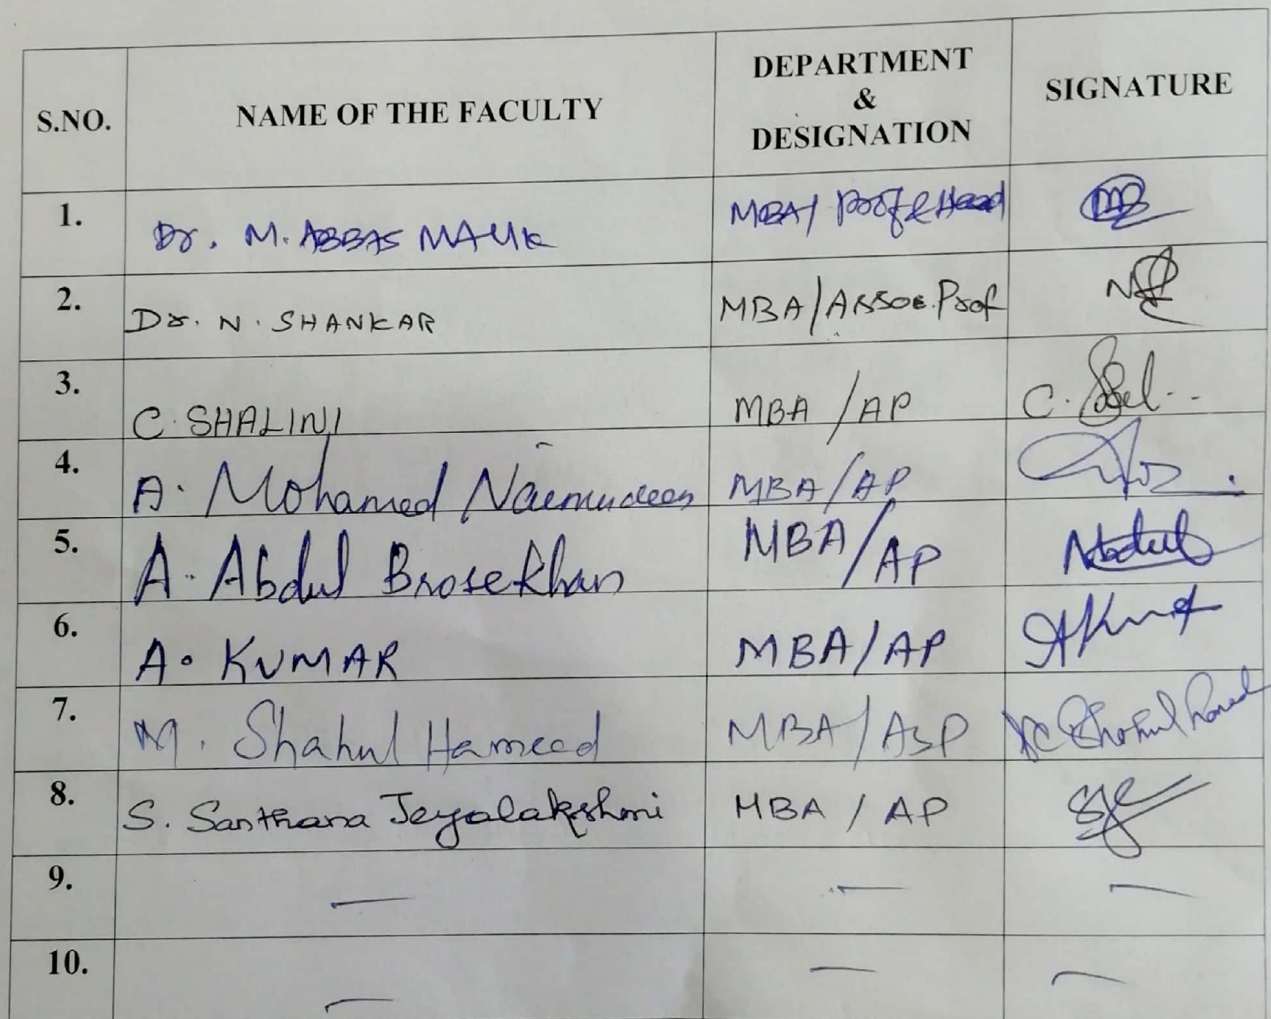 S.NO. NAME OF THE FACULTY DEPARTMENT & DESIGNATION SIGNATURE
1. Dr. M. ABBAS MALIK MBA/ Prof & Head
2. Dr. N. SHANKAR MBA/Assoc. Prof
3. C. SHALINI MBA /AP C.
4. A. Mohamed Naemudeen MBA/AP
5. A. Abdul Brosekhan MBA/AP Abdul
6. A. KUMAR MBA/AP
7. M. Shahul Hameed MBA/AsP
8. S. Santhana Jeyalakshmi MBA / AP
9. — — —
10. — — —